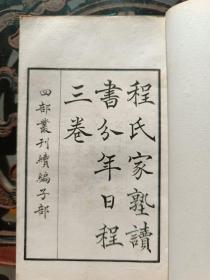 程氏家塾讀
書分年日程
三卷
四部叢刊續編子部